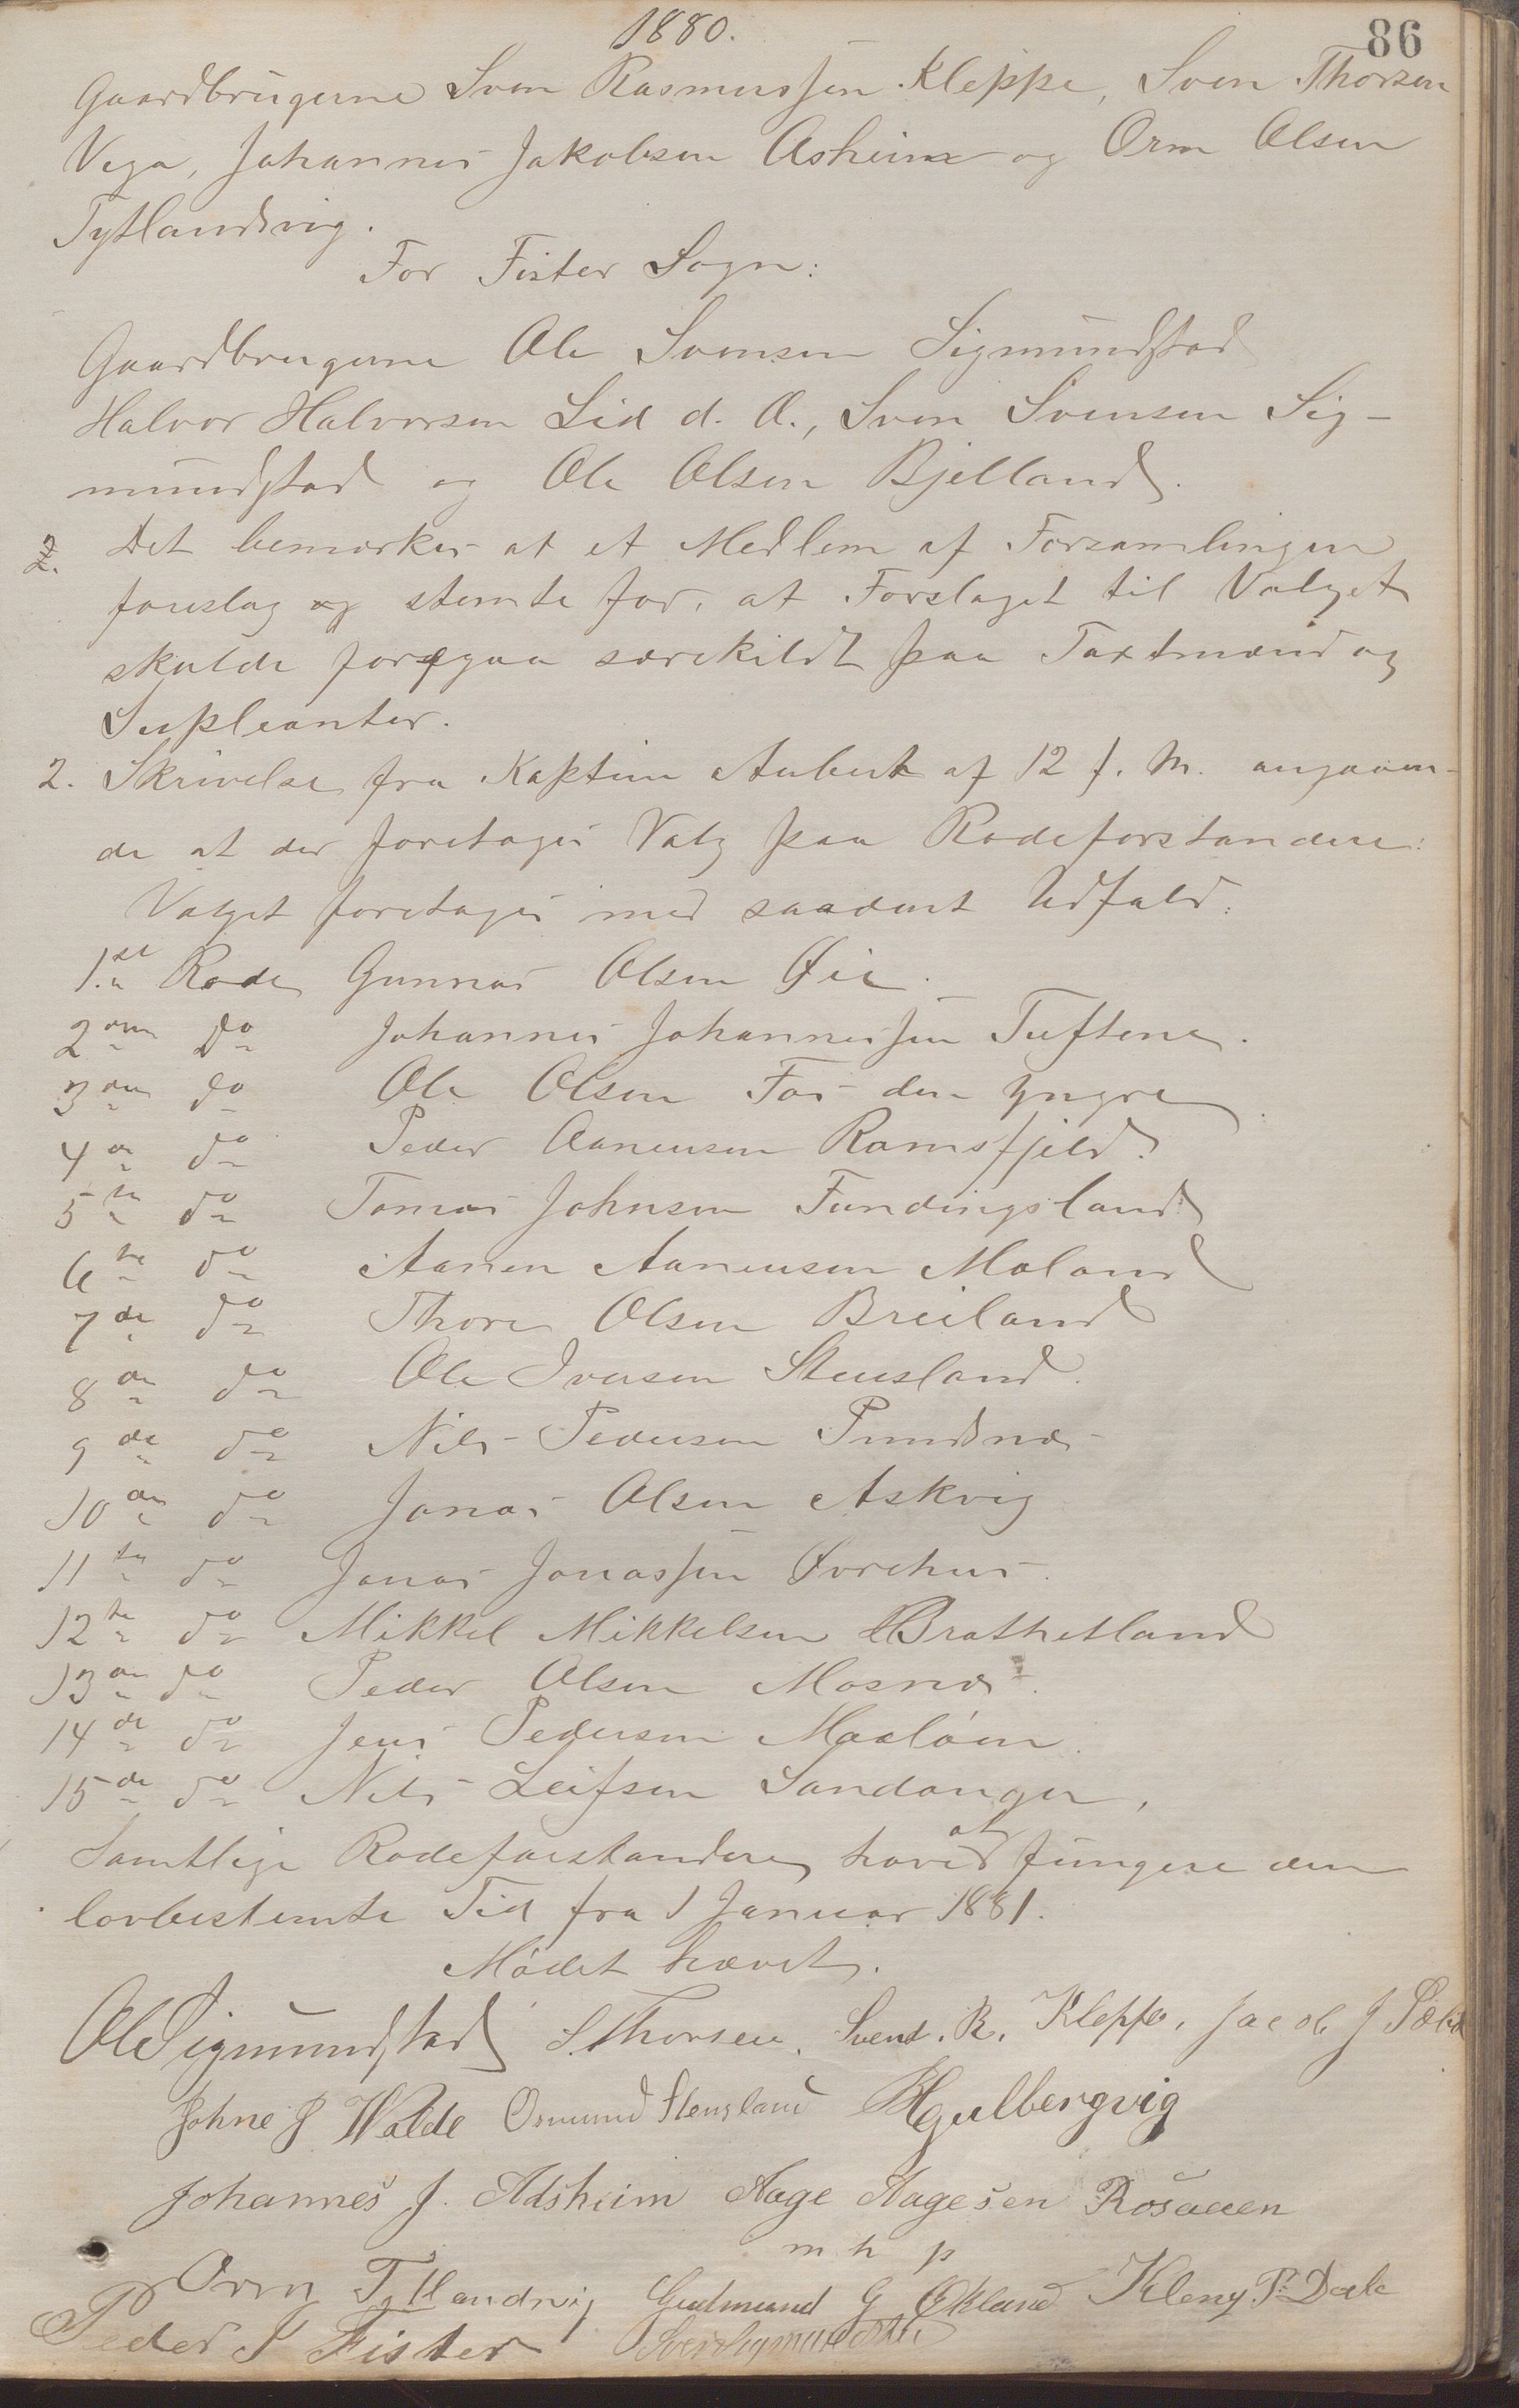 1880.
86
Gaardbrugerne Sven Rasmussen Kleppe, Sven Thorsen
Vega, Johannes Jakobsen Asheim og Orm Olsen
Tytlandsvig.
For Fister Sogn:
Gaardbrugerne Ole Svensen Sigmundstad
Halvor Halvorsen Lid d. Æ., Sven Svensen Sig-
mundstad og Ole Olsen Bjelland.
2. Det bemærkes at et Medlem af Forsamlingen
foreslog og stemte for, at Forslaget til Valget
skulde foregaa særskildt paa Taxtmænd og
Supleanter.
2. Skrivelse fra Kaptein Aubert af 12 f. M. angaaen-
de at der foretages Valg paa Rodeforstandere:
Valget foretages med saadant Udfald:
1.ste Rode Gunnar Olsen Øie.
2den do Johannes Johannessen Tuftene.
3die do Ole Olsen Fos den yngre
4de do Peder Aanensen Ramsfjeld.
5te do Tomas Johnsen Fundingsland
6te do Aanen Aanensen Maland
7de do Thore Olsen Breiland
8de do Ole Iversen Stensland.
9de do Nils Pedersen Pundsnæs
10de do Jonas Olsen Askvig
11te do Jonas Jonassen Øvrehus.
12te do Mikkel Mikkelsen Brathetland
13de do Peder Olsen Mosnæs.
14de do Jens Pedersen Maaløen.
15de do Nils Leifsen Sandanger.
Samtlige Rodeforstandere haved at fungere den
lovbestemte Tid fra 1 Januar 1881.
Mødet hævet.
Ole Sigmundstad S. Thorsen. Svend. R. Kleppe. Jacob J
Johne J Walde Osmund Stensland Hgulbergvig
Johannes J. Adsheim Aage Aagesen Rosaaen
m h p
Orm Tytlandsvig Gudmund G Økland Kleng P. Dale
Peder J Fister Sven Sigmundstad